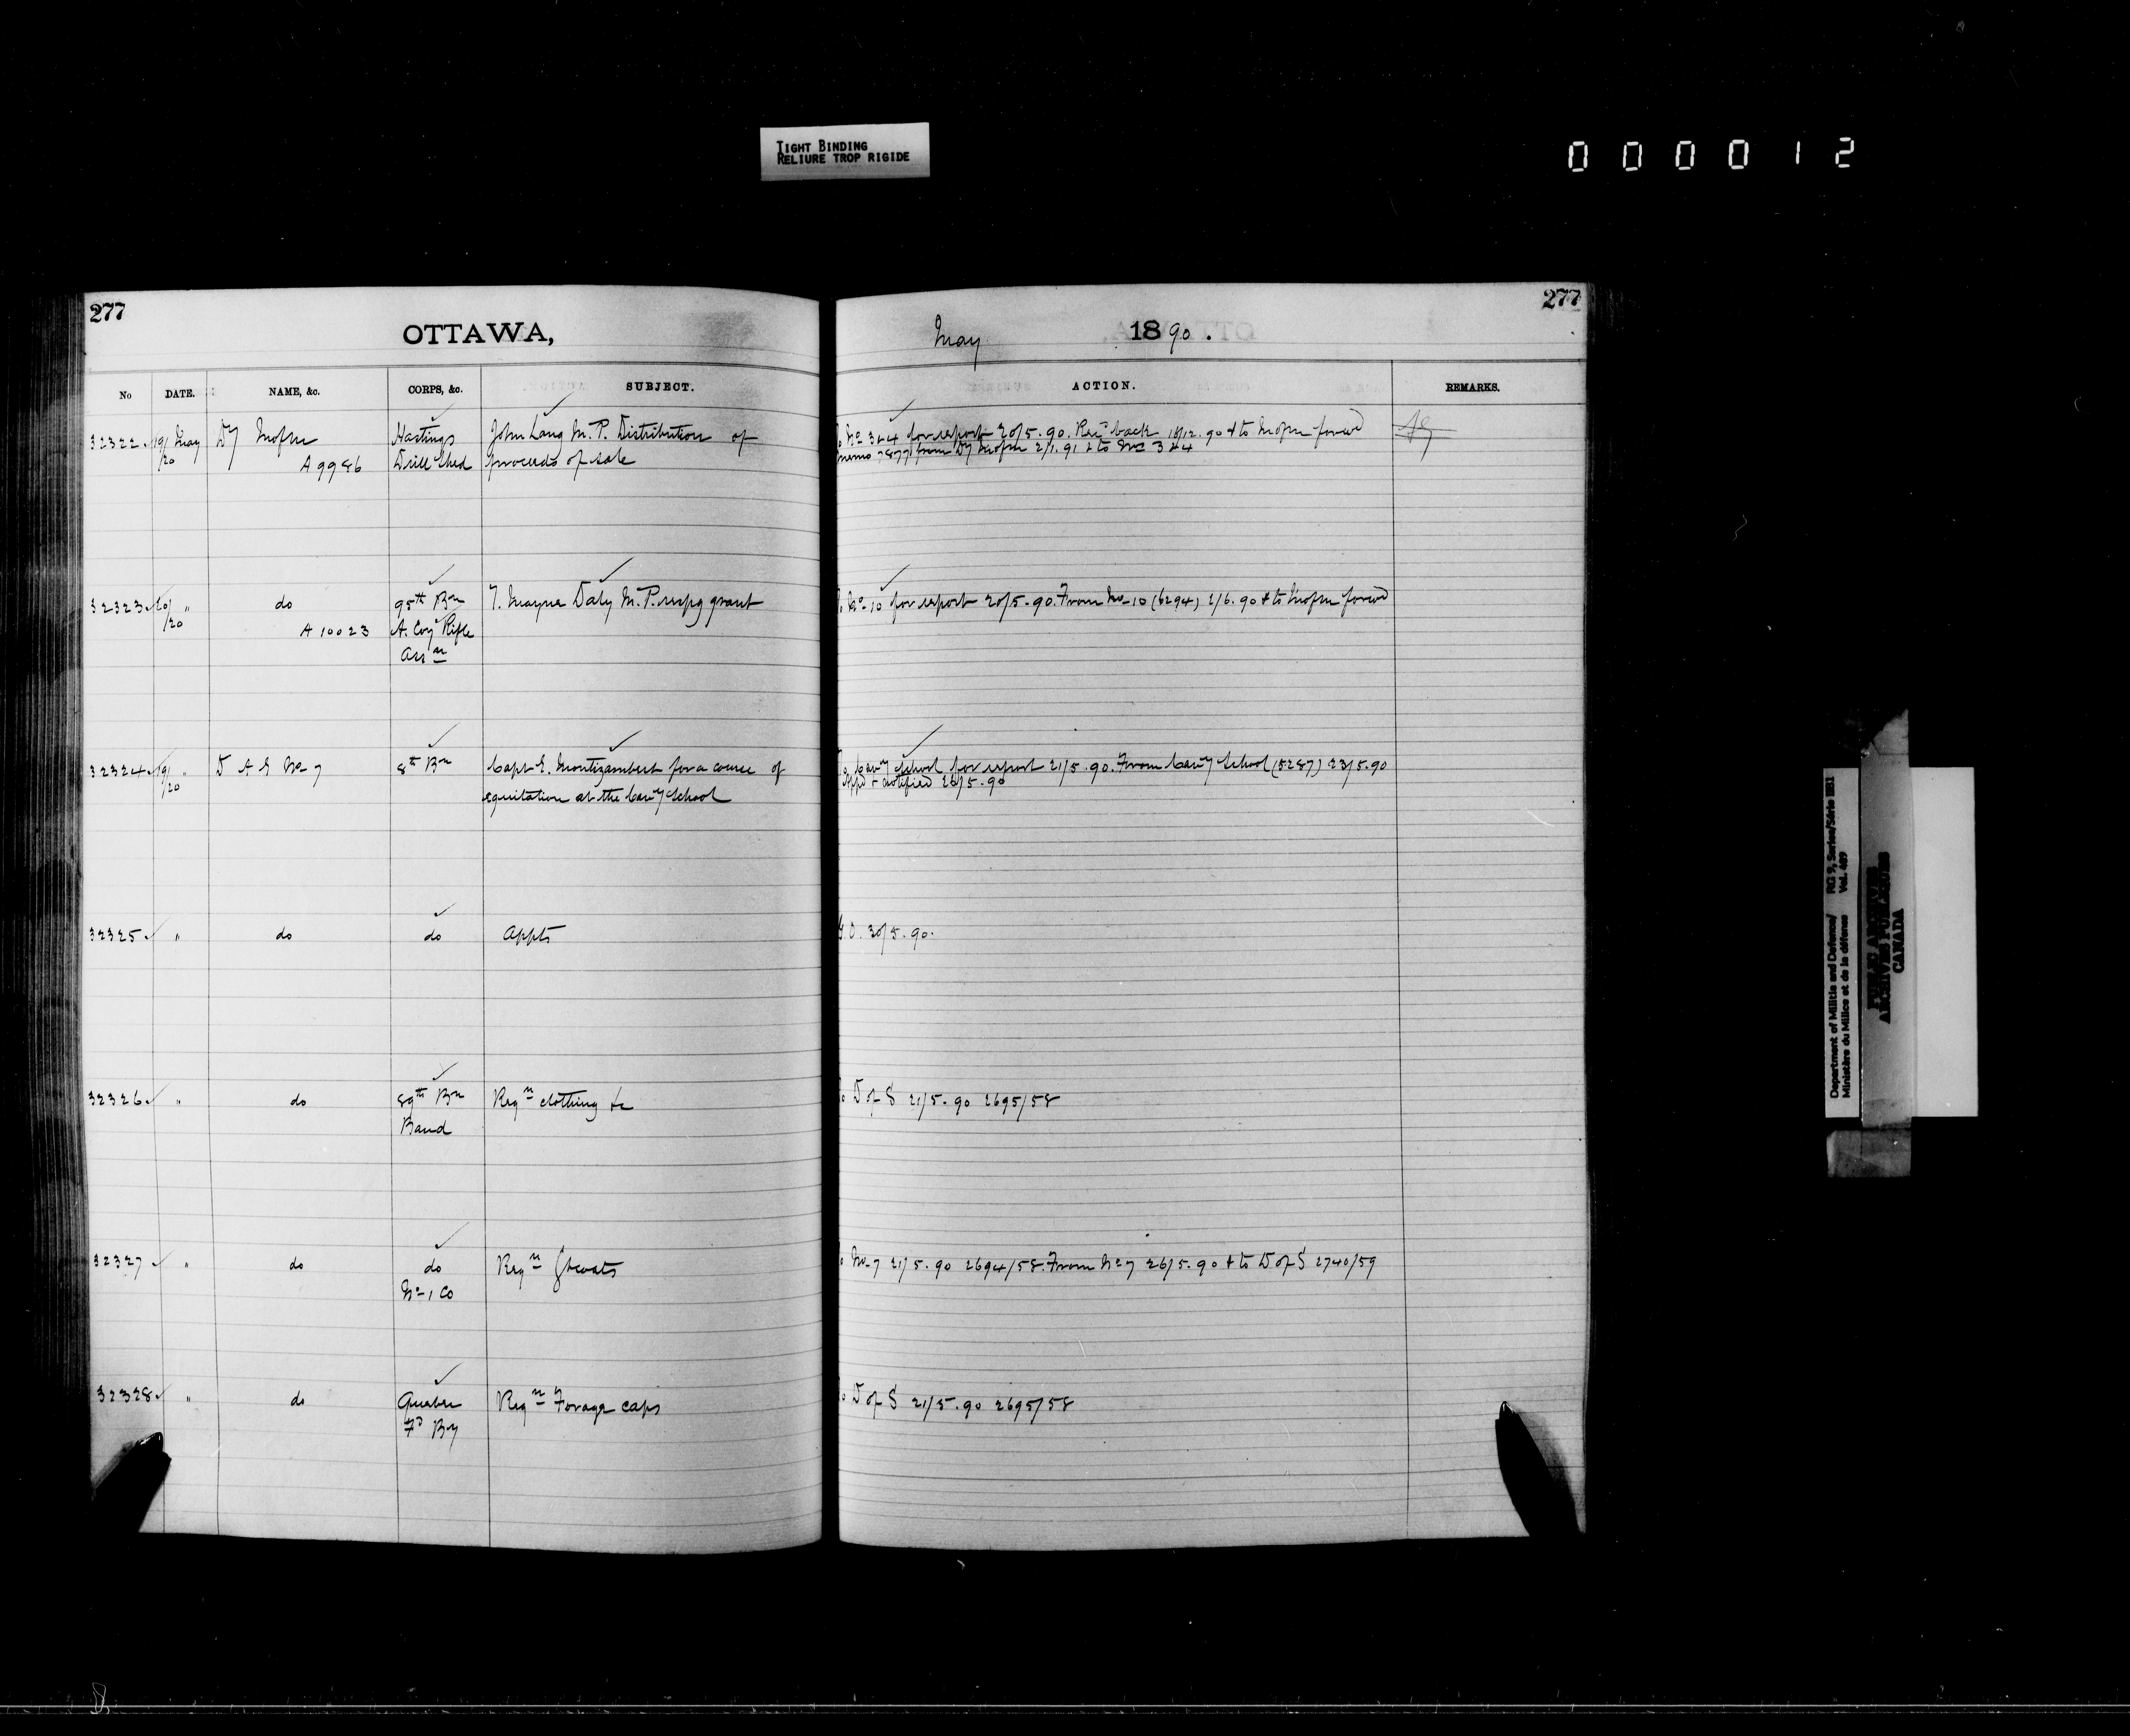 TIGHT BINDING
RELIURE TROP RIGIDE
000012
277
OTTAWA,
No DATE. NAME, &c. CORPS, &c. SUBJECT.
32322 19/ May Dy Mofm Hastings John Lang M.P. Distribution of
/20 A 9986 Drill Shed proceeds of sale
32323 20/ " do 95th Bn T. Mayne Daly M.P. respg grant
/20 A 10023 A. Coy Rifle
Assn
32324 19/ " D A G No 7 8th Bn Capt E. Montizambert for a course of
/20 equitation at the Cavy School
32325 " do do Appts
32326 " do 89th Bn Reqn clothing &c
Band
32327 " do do Reqn Gtcoats
No 1 Co
32328 " do Quebec Reqn Forage caps
Fd By
277
May 1890.
ACTION. REMARKS.
No 3 & 4 for report 20/5.90. Recd back 18/12.90 & to Mofm forwd
memo 7877 from Dy Mofm 2/1.91 & to No 3 & 4
No 10 for report 20/5.90. From No 10 (6294) 2/6.90 & to Mofm forwd
Cavy School for report 21/5.90. From Cavy School (5287) 23/5.90
Appd & notified 26/5.90
G O. 30/5.90.
To D of S 21/5.90 2695/58
To No 7 21/5.90 2694/58. From No 7 26/5.90 & to D of S 2740/59
To D of S 21/5.90 2695/58
Department of Militia and Defence/ RG 9, Series/Série IIB1
Ministère du Milice et de la défense Vol. 409
PUBLIC ARCHIVES
ARCHIVES PUBLIQUES
CANADA